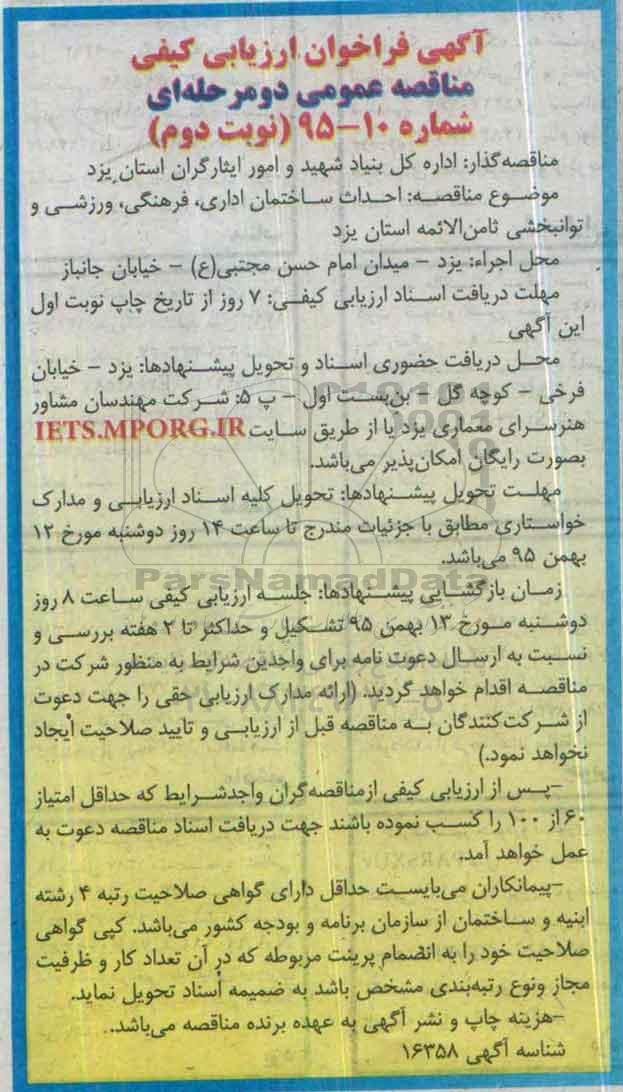 آگهی فراخوان ارزیابی کیفی
مناقصه عمومی دومرحله‌ای
شماره ۱۰–۹۵ (نوبت دوم)
مناقصه‌گذار: اداره کل بنیاد شهید و امور ایثارگران استان یزد
موضوع مناقصه: احداث ساختمان اداری، فرهنگی، ورزشی و
توانبخشی ثامن‌الائمه استان یزد
محل اجراء: یزد – میدان امام حسن مجتبی(ع) – خیابان جانباز
مهلت دریافت اسناد ارزیابی کیفی: ۷ روز از تاریخ چاپ نوبت اول
این آگهی
محل دریافت حضوری اسناد و تحویل پیشنهادها: یزد – خیابان
فرخی – کوچه گل – بن‌بست اول – پ ۵: شرکت مهندسان مشاور
هنرسرای معماری یزد یا از طریق سایت IETS.MPORG.IR
بصورت رایگان امکان‌پذیر می‌باشد.
مهلت تحویل پیشنهادها: تحویل کلیه اسناد ارزیابی و مدارک
خواستاری مطابق با جزئیات مندرج تا ساعت ۱۴ روز دوشنبه مورخ ۱۲
بهمن ۹۵ می‌باشد.
ParsNamadData
زمان بازگشایی پیشنهادها: جلسه ارزیابی کیفی ساعت ۸ روز
دوشنبه مورخ ۱۳ بهمن ۹۵ تشکیل و حداکثر تا ۲ هفته بررسی و
نسبت به ارسال دعوت نامه برای واجدین شرایط به منظور شرکت در
مناقصه اقدام خواهد گردید. (ارائه مدارک ارزیابی حقی را جهت دعوت
از شرکت‌کنندگان به مناقصه قبل از ارزیابی و تایید صلاحیت ایجاد
نخواهد نمود.)
–پس از ارزیابی کیفی ازمناقصه‌گران واجدشرایط که حداقل امتیاز
۶۰ از ۱۰۰ را کسب نموده باشند جهت دریافت اسناد مناقصه دعوت به
عمل خواهد آمد.
–پیمانکاران می‌بایست حداقل دارای گواهی صلاحیت رتبه ۴ رشته
ابنیه و ساختمان از سازمان برنامه و بودجه کشور می‌باشد. کپی گواهی
صلاحیت خود را به انضمام پرینت مربوطه که در آن تعداد کار و ظرفیت
مجاز ونوع رتبه‌بندی مشخص باشد به ضمیمه اسناد تحویل نماید.
–هزینه چاپ و نشر آگهی به عهده برنده مناقصه می‌باشد.
شناسه آگهی ۱۶۳۵۸